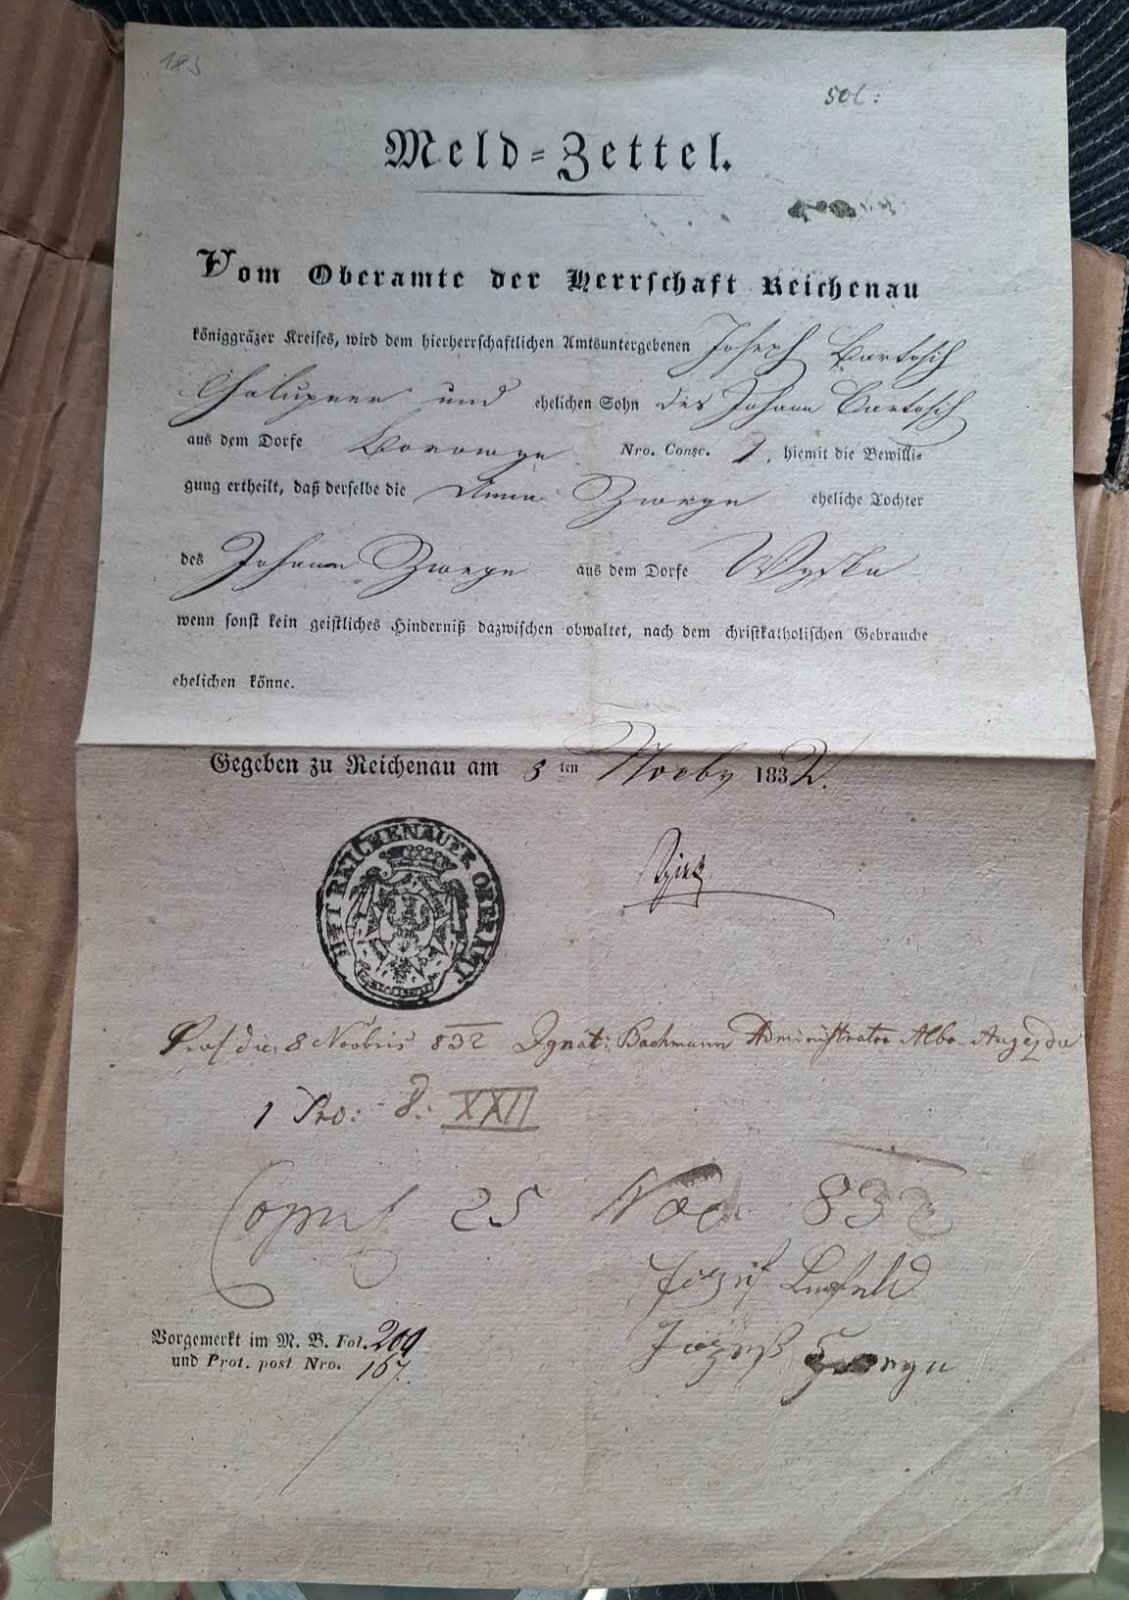 183
50C:
Meld-Zettel.
Vom Oberamte der Herrschaft Reichenau
königgräzer Kreises, wird dem hierherrschaftlichen Amtsuntergebenen Joseph Bartosch
Chalupner und ehelichen Sohn des Johann Bartosch
aus dem Dorfe Nro. Consc. 1, hiemit die Bewilli-
gung ertheilt, daß derselbe die Anna eheliche Tochter
des Johann aus dem Dorfe
wenn sonst kein geistliches Hinderniß dazwischen obwaltet, nach dem christkatholischen Gebrauche
ehelichen könne.
Gegeben zu Reichenau am 8 ten Novbr 1832.
REICHENAUER OBERAMT
8 Novbris 832 Ignat: Bachmann Administrator Albo Augezdu
1 Pro: 8: XXII
Copul 25 832
Vorgemerkt im M. B. Fol. 209
und Prot. post Nro. 167.